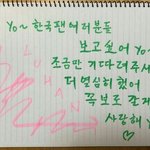 yo~ 한국팬여러분들
보고싶어 yo~
조금만 기다려주세
더 열심히했어
꼭보로 갈게
사랑해 y